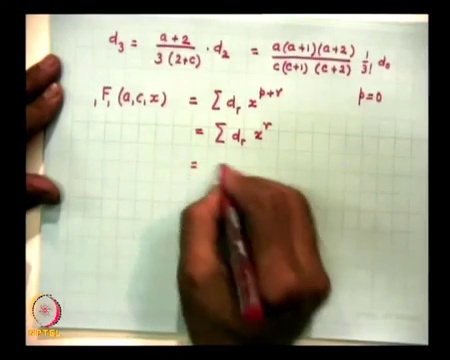 d₃ = (a+2)/(3(2+c)) · d₂ = (a(a+1)(a+2))/(c(c+1)(c+2)) 1/3! d₀
₁F₁(a,c,x) = ∑ dᵣ x^(p+r) p=0
= ∑ dᵣ x^r
=
NPTEL